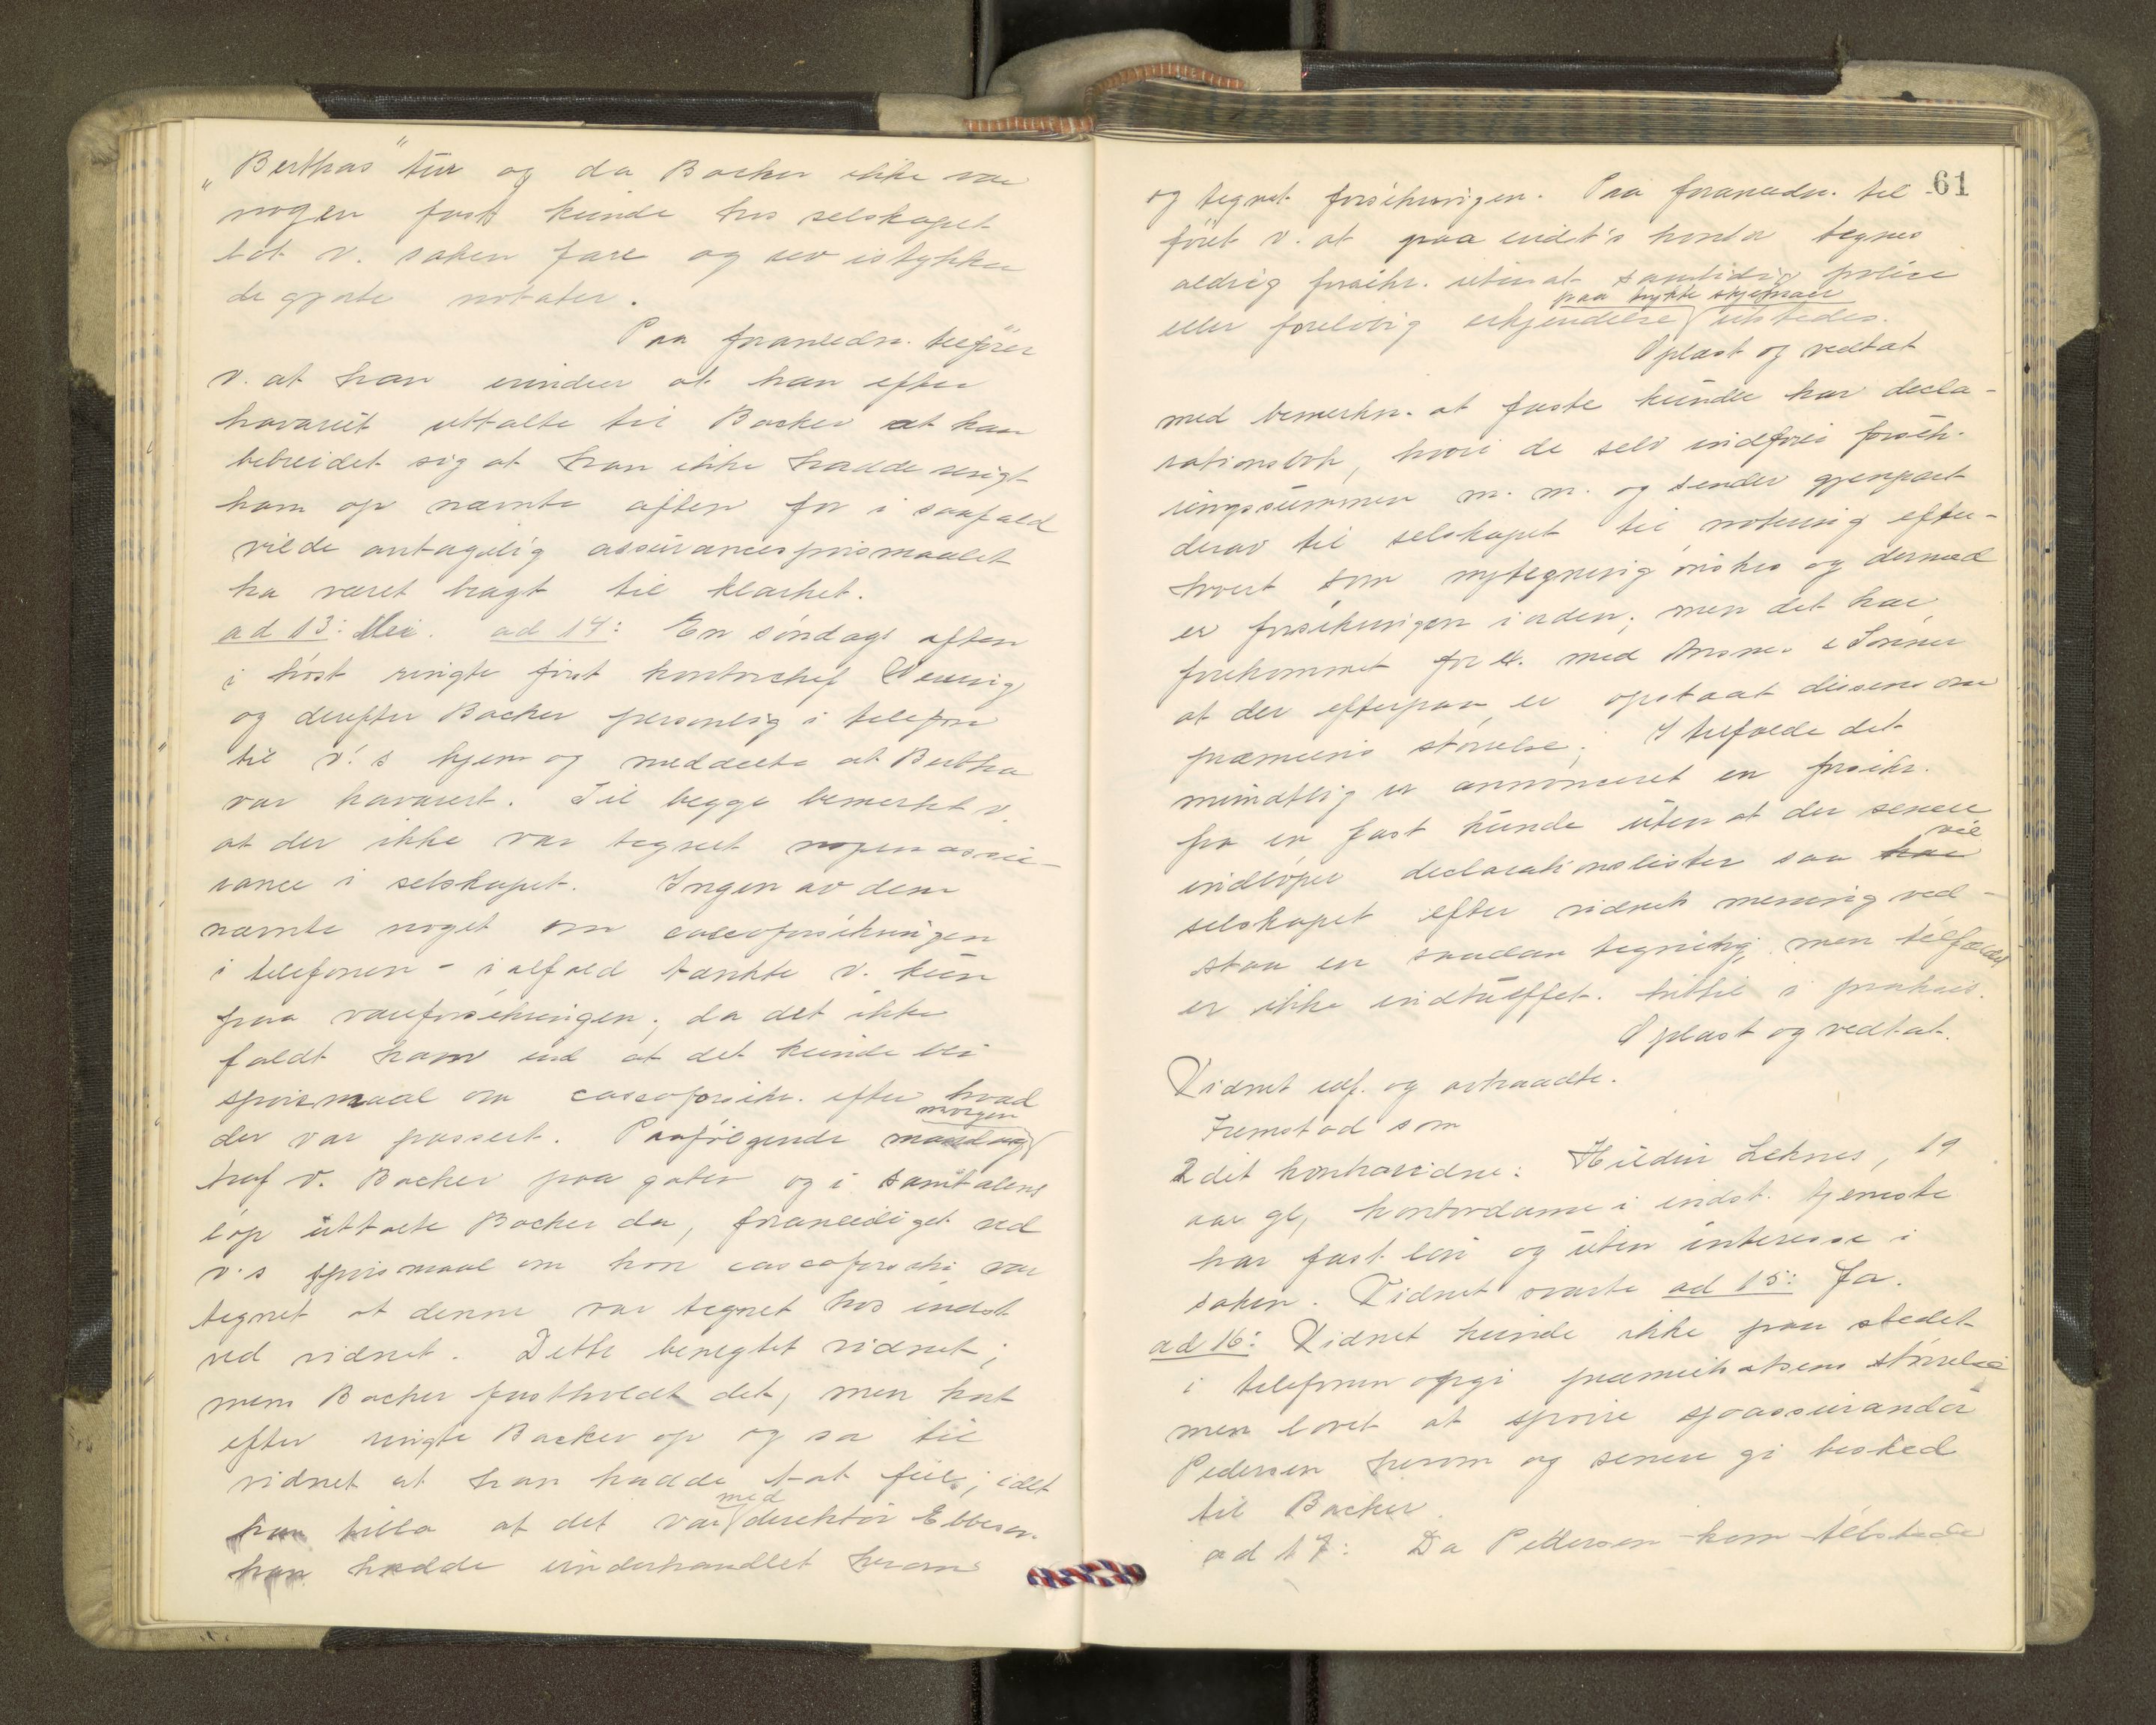 „Berthas" tur og da Backer ikke var
nogen fast kunde hos selskapet
lot v. saken fare og rev istykker
de gjorte notater.
Paa foranledn. tilfører
v. at han erindrer at han efter
havariet uttalte til Backer at han
bebreidet sig at han ikke hadde ringt
ham op nævnte aften for i saafald
vilde antagelig assurancespørsmaalet
ha været bragt til klarhet.
ad 13: Nei. ad 14: En søndags aften
i høst ringte først kontorchef
og derefter Backer personlig i telefon
til v.'s hjem og meddelte at Bertha
var havarert. Til begge bemerket v.
at der ikke var tegnet nogen assu-
rance i selskapet. Ingen av dem
nævnte noget om cascoforsikringen
i telefonen - i alfald tænkte v. kun
paa vareforsikringen; da det ikke
faldt ham ind at det kunde bli
spørsmaal om cascoforsikr. efter hvad
der var passert. Paafølgende mandag morgen
traf v. Backer paa gaten og i samtalens
løp uttalte Backer da, foranlediget ved
v.s spørsmaal om hvor cascoforsikr. var
tegnet at denne var tegnet hos indst.
ved vidnet. Dette benegtet vidnet;
men Backer fastholdt det, men kort
efter ringte Backer op og sa til
vidnet at han hadde tat feil; idet
han tilla at det var med direktør Ebbesen
han hadde underhandlet herom
61
og tegnet forsikringen. Paa foranledn. til
føiet v. at paa indst's kontor tegnes
aldrig forsikr. uten at samtidig police
eller foreløbig erkjendelse paa trykte skjemaer utstedes.
Oplæst og vedtat
med bemerkn. at faste kunder har decla-
rationsbok, hvori de selv indfører forsik-
ringssummen m. m. og sender gjenpart
derav til selskapet til notering efter-
hvert som nytegning ønskes og dermed
er forsikringen i orden; men det har
forekommet for ex. med & Sønner
at der efterpaa er opstaat dissens om
præmiens størrelse; I tilfælde det
mundtlig er annonceret en forsikr.
fra en fast kunde uten at der senere
indløper declarationslister saa har vil
selskapet efter vidnets mening ved-
staa en saadan tegning, men tilfældet
er ikke indtruffet hittil i praksis.
Oplæst og vedtat.
Vidnet edf. og avtraadte.
Fremstod som
2det kontravidne: Leknes, 19
aar gl, kontordame i indst. tjeneste
har fast løn og uten interesse i
saken. Vidnet svarte ad 15: Ja.
ad 16: Vidnet kunde ikke paa stedet
i telefonen opgi præmiesatsens størrelse
men lovet at spørre sjøassurandør
Pedersen herom og senere gi besked
til Backer.
ad 17: Da Pedersen kom tilstede